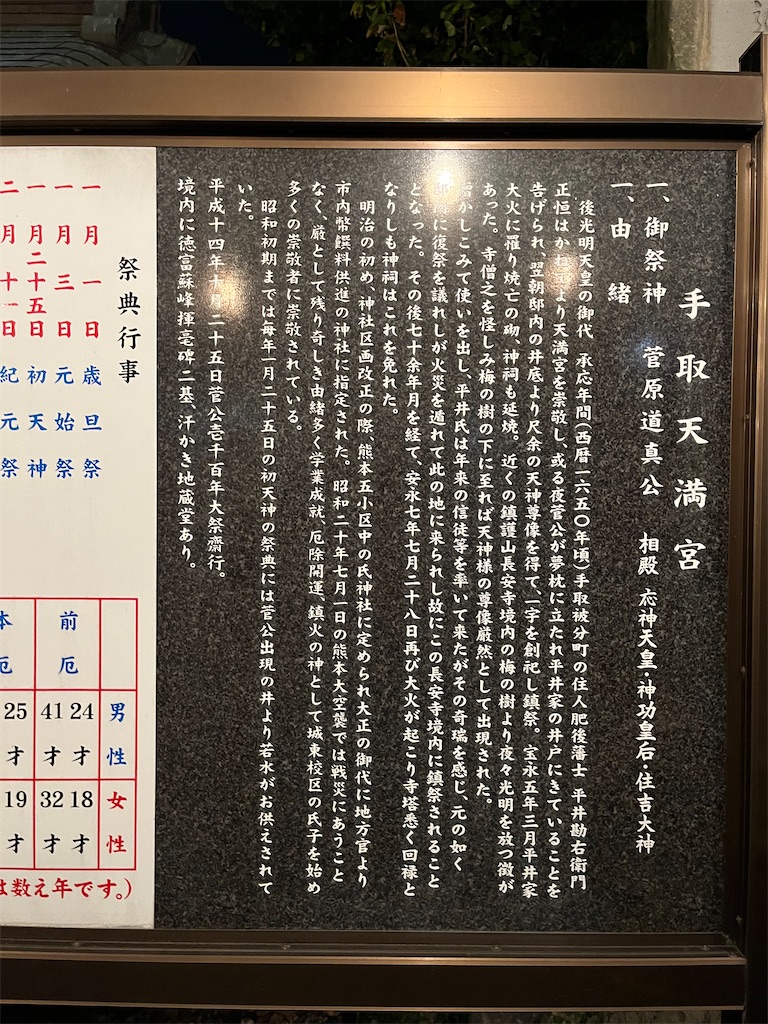 手取天満宮
一、御祭神 菅原道真公 相殿 応神天皇・神功皇后・住吉大神
一、由緒
後光明天皇の御代 承応年間(西暦一六五〇年頃)手取被分町の住人肥後藩士 平井勘右衛門
正恒はかね より天満宮を崇敬し、或る夜菅公が夢枕に立たれ平井家の井戸にきていることを
告げられ、翌朝邸内の井底より尺余の天神尊像を得て、一宇を創祀し鎮祭。宝永五年三月平井家
大火に罹り焼亡の砌、神祠も延焼。近くの鎮護山長安寺境内の梅の樹より夜々光明を放つ徴が
あった。寺僧之を怪しみ梅の樹の下に至れば天神様の尊像厳然として出現された。
僧かしこみて使いを出し、平井氏は年来の信徒等を率いて来たがその奇瑞を感じ、元の如く
に復祭を議れしが火災を遁れて此の地に来られし故にこの長安寺境内に鎮祭されること
となった。その後七十余年月を経て、安永七年七月二十八日再び大火が起こり寺塔悉く回禄と
なりしも神祠はこれを免れた。
明治の初め、神社区画改正の際、熊本五小区中の氏神社に定められ大正の御代に地方官より
市内幣饌料供進の神社に指定された。昭和二十年七月一日の熊本大空襲では戦災にあうこと
なく、厳として残り奇しき由緒多く学業成就、厄除開運、鎮火の神として城東校区の氏子を始め
多くの崇敬者に崇敬されている。
昭和初期までは毎年一月二十五日の初天神の祭典には菅公出現の井より若水がお供えされて
いた。
平成十四年十月二十五日菅公壱千百年大祭齋行。
境内に徳富蘇峰揮毫碑二基、汗かき地蔵堂あり。
祭典行事
一月一日 歳旦祭
一月三日 元始祭
一月二十五日 初天神
二月十一日 紀元祭
前厄 本厄
男性 24才 41才 25才
女性 18才 32才 19才
は数え年です。)